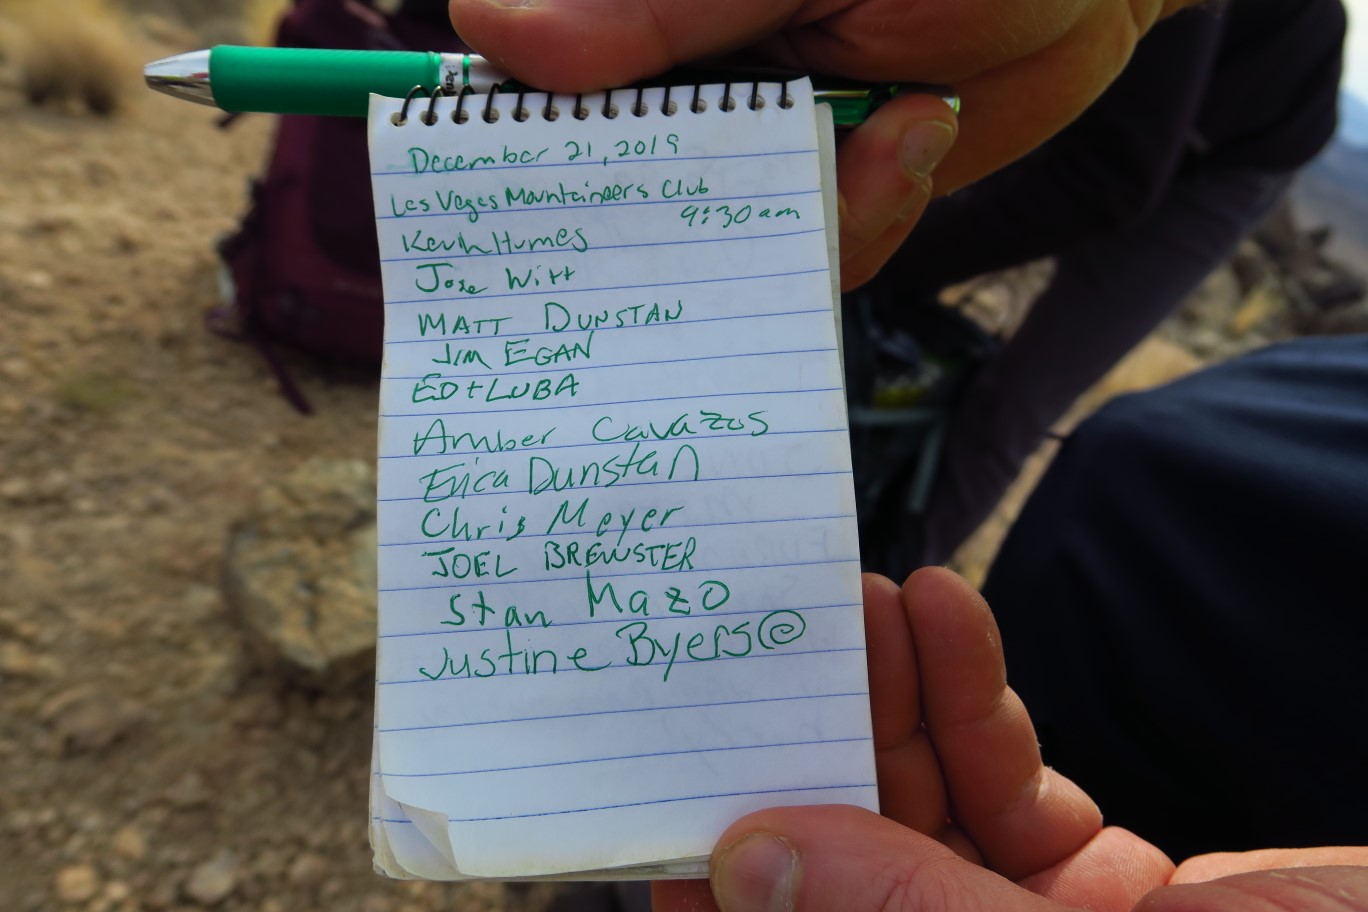 December 21, 2019
Las Vegas Mountaineers Club
9:30 am
Kevin Humes
Jose Witt
MATT DUNSTAN
JIM EGAN
ED + LUBA
Amber Cavazos
Erica Dunstan
Chris Meyer
JOEL BREWSTER
Stan Mazo
Justine Byers